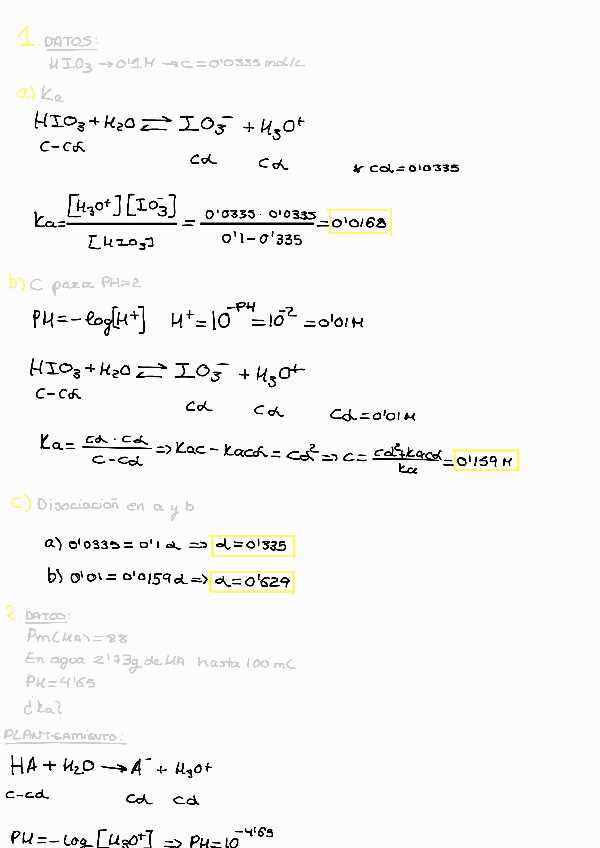 1. DATOS:
HIO₃ → 0'1M → C = 0'0335 mol/L
a) Ka
HIO₃ + H₂O ⇌ IO₃⁻ + H₃O⁺
C-Cα Cα Cα * Cα = 0'0335
Ka = [H₃O⁺][IO₃⁻] / [HIO₃] = 0'0335 · 0'0335 / 0'1 - 0'335 = 0'0168
b) C para PH=2
PH = -log[H⁺] H⁺ = 10^-PH = 10^-2 = 0'01M
HIO₃ + H₂O ⇌ IO₃⁻ + H₃O⁺
C-Cα Cα Cα Cα = 0'01M
Ka = Cα · Cα / C-Cα => KaC - KaCα = Cα² => C = Cα² + KaCα / Ka = 0'159 M
c) Disociación en a y b
a) 0'0335 = 0'1 α => α = 0'335
b) 0'01 = 0'0159 α => α = 0'629
2. DATOS:
Pm(HA) = 88
En agua 2'73g de HA hasta 100 mL
PH = 4'65
¿Ka?
PLANTEAMIENTO:
HA + H₂O → A⁻ + H₃O⁺
C-Cα Cα Cα
PH = -log [H₃O⁺] => PH = 10^-4'65